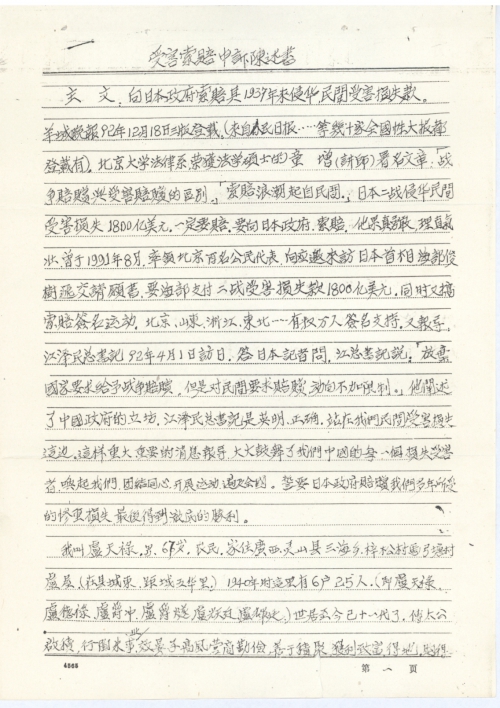 受害索赔申诉陈述书
主文：向日本政府索赔其1937年来侵华，民間受害損失款。
羊城晚報92年12月18日3版登載，（来自人民日报……等数十家全國性大报都
登載有）。北京大学法律系荣獲法学碩士的童 增（講師）署名文章，「战
争賠賍與受害賠賍的區别」，「索賠浪潮起自民間」，日本二战侵华民間
受害損失1800亿美元，一定要賠，要向日本政府，索賠，他果真勇敢，理直氣
壮，曾于1991年8月，率領北京百名公民代表，向应邀來訪日本首相海部俊
樹遞交請願書，要海部支付二战受害損失款1800亿美元，同时又搞
索賠签名运动，北京、山東、浙江、東北……有权万人签名支持，又報导，
江泽民总書記92年4月1日訪日，答日本記者問，江总書記説：「放棄
國家要求给予战争賠賍，但是对民間要求賠賍，动向不加限制。」他闡述
了中國政府的立场，江泽民总書記是英明、正确，站在我們民間受害損失
這边，這样重大重要的消息報导，大大鼓舞了我們中國的每一個損失受害
者，唤起我們，团结同心，开展运动遍及全國。 要日本政府賠賍我們多年所受
的惨重損失，最後得到澈底的勝利。
我叫盧天禄，男，67岁，农民，家住廣西灵山县三海乡梓木公村 塘村
盧屋，（在县城東，距城五华里）1940年时這里有6户25人，（即盧天禄、
盧德修、盧爵中、盧爵 、盧 、盧 ）世居至今已十八代了，傳太公
啟 ，何 来 业， 子高风营商勤儉，善于積聚，獲利致富，得地，
4865
第一頁